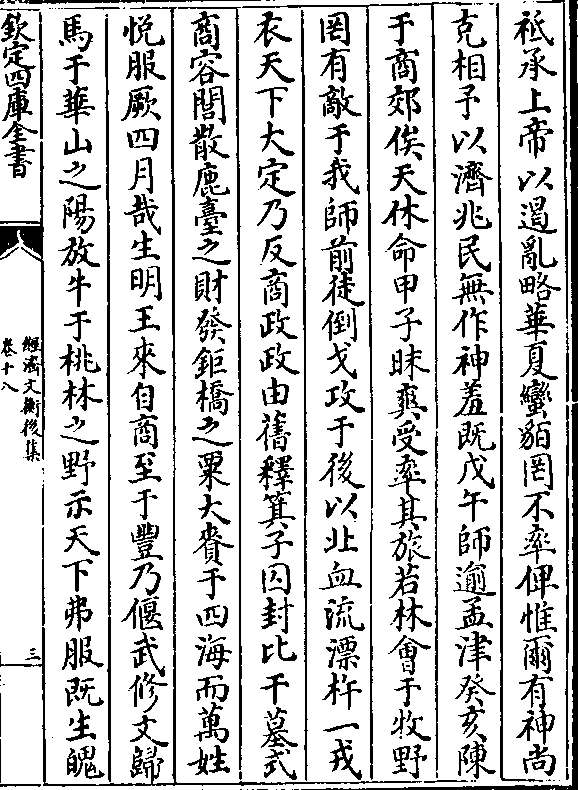 祗承上帝以遏亂略華夏蠻貊罔不率俾惟爾有神尚
克相予以濟兆民無作神羞既戊午師逾孟津癸亥陳
于商郊俟天休命甲子昧爽受率其旅若林㑹于牧野
罔有敵于我師前徒倒戈攻于後以北血流漂杵一戎
衣天下大定乃反商政政由舊釋箕子囚封比干墓式
商容閭散鹿臺之財發鉅橋之粟大賚于四海而萬姓
悦服厥四月哉生明王來自商至于豐乃偃武修文歸
馬于華山之陽放牛于桃林之野示天下弗服既生魄
欽定四庫全書
經濟文衡後集
卷十八
三